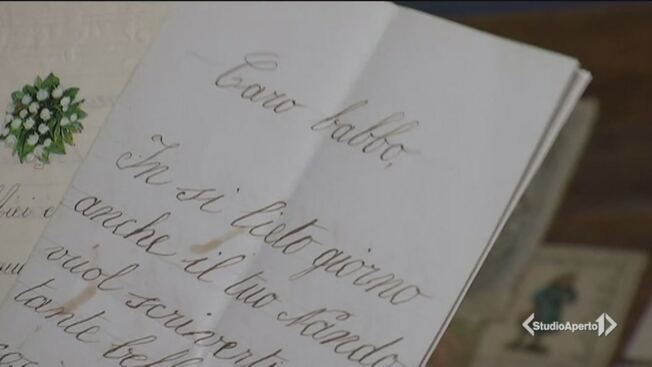 Caro babbo,
In sì lieto giorno
anche il tuo Nando
vuol scriverti
tante bell
StudioAperto